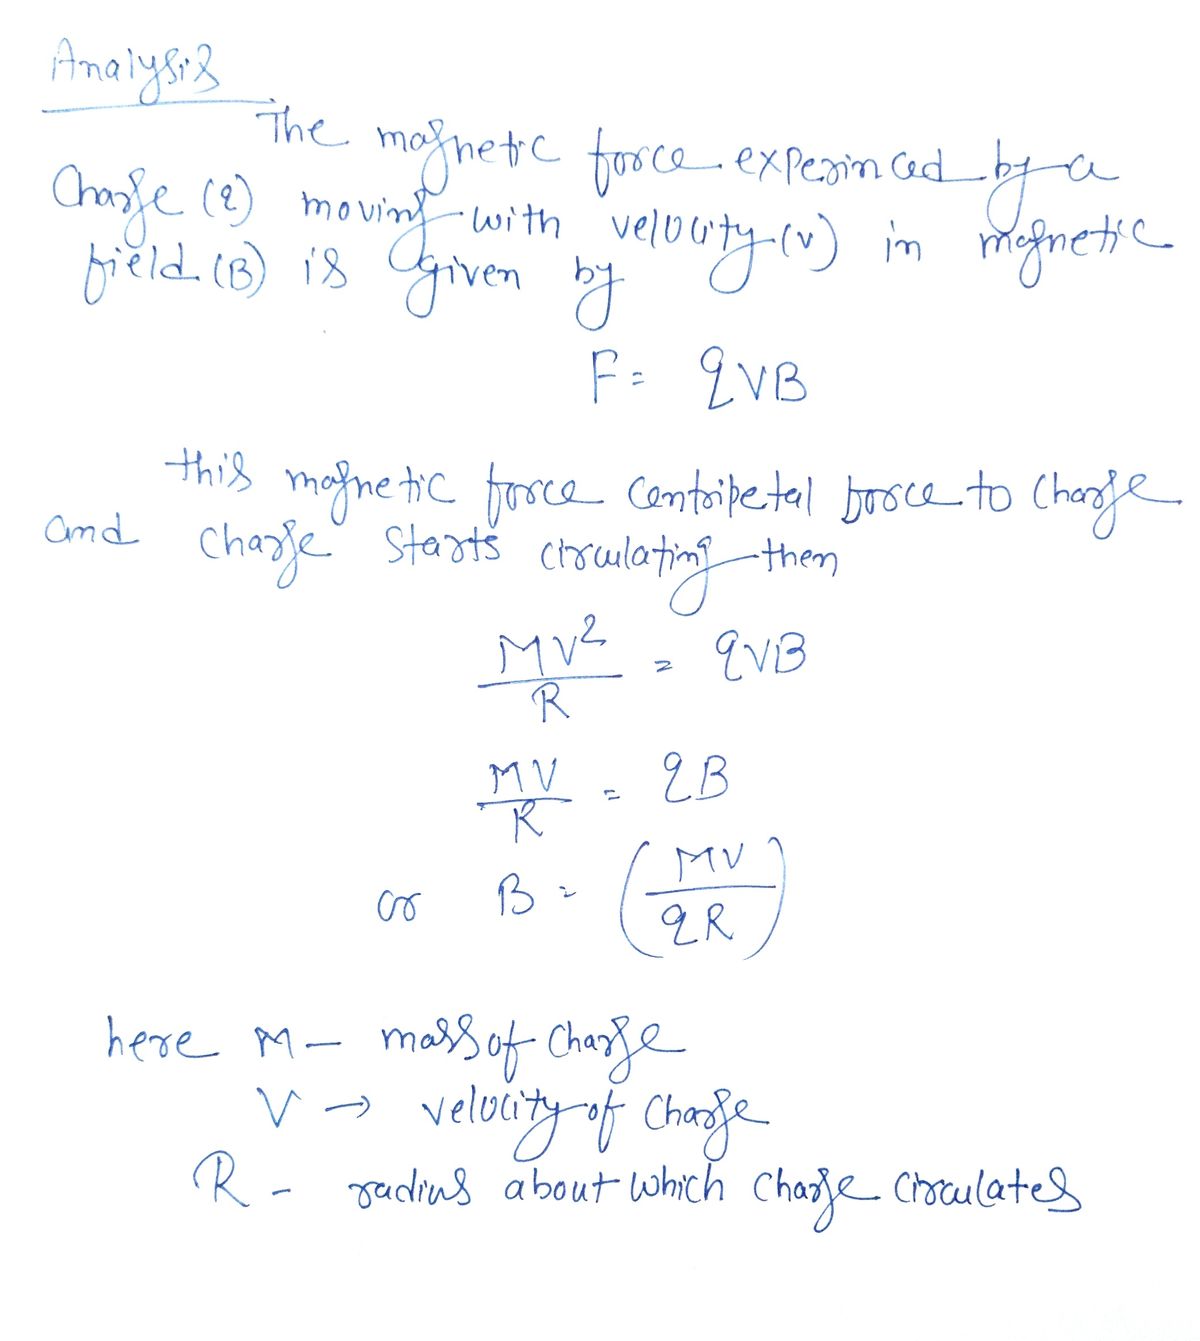 Analysis
The magnetic force experinced by a
Charge (q) moving with velocity (v) in magnetic
field (B) is given by
F = qVB
this magnetic force centripetal force to charge
and charge starts circulating then
MV²/R = qVB
MV/R = qB
or B = (MV/qR)
here M - mass of charge
V → velocity of charge
R - radius about which charge circulates